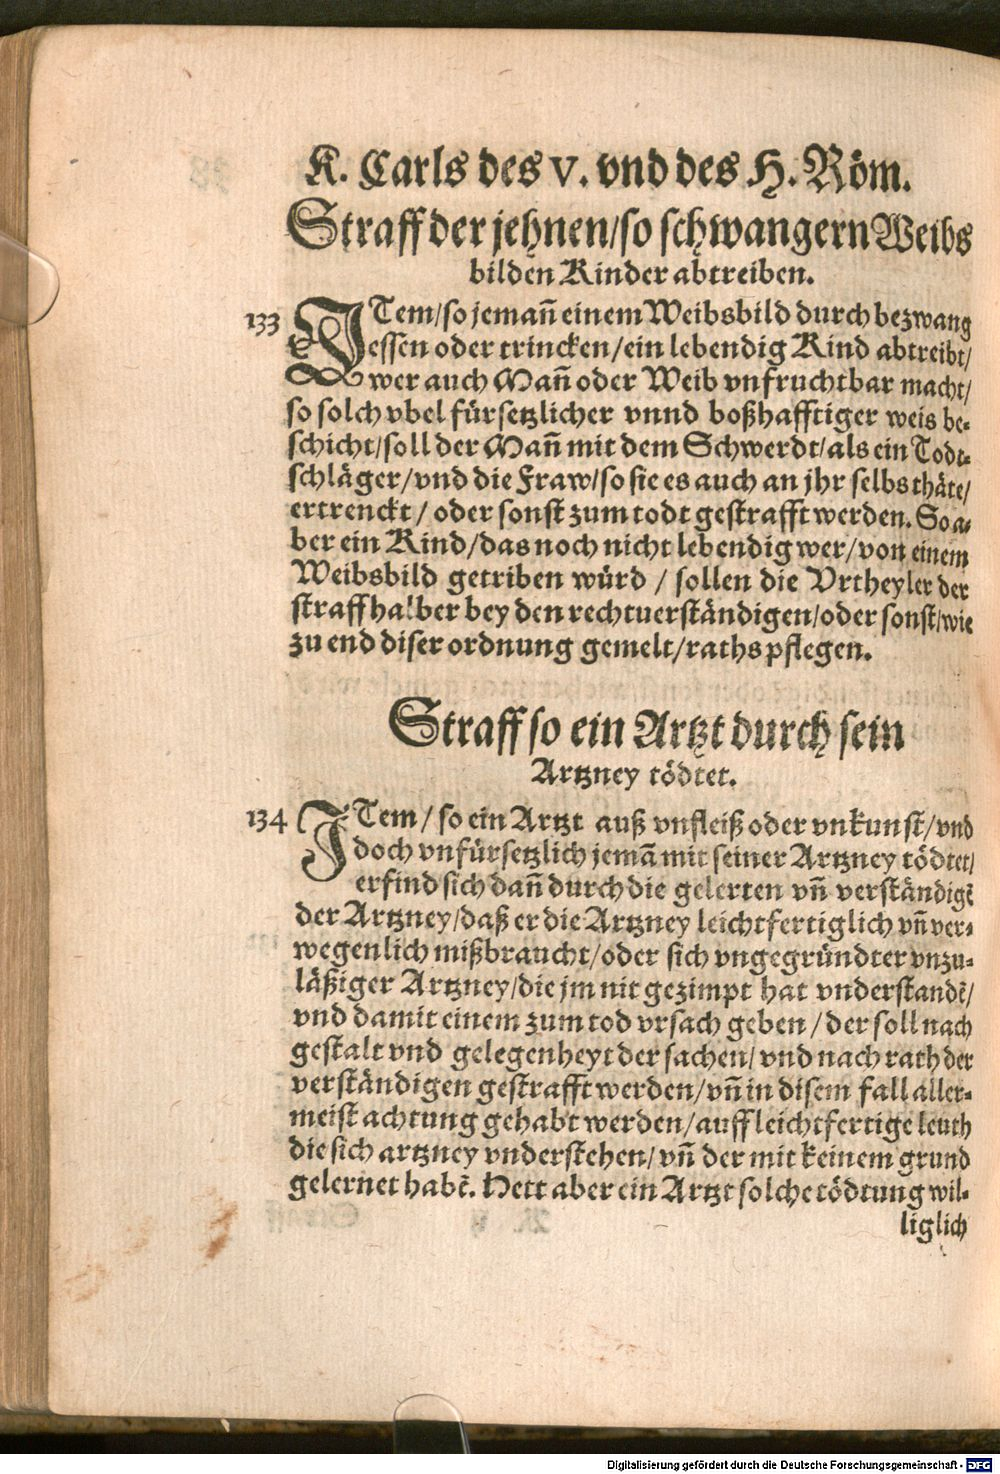 K. Carls des V. vnd des H. Röm.
Straff der jehnen/so schwangern Weibs
bilden Kinder abtreiben.
133 ITem/so jemañ einem Weibsbild durch bezwang
essen oder trincken/ein lebendig Kind abtreibt/
wer auch Mañ oder Weib vnfruchtbar macht/
so solch vbel fürsetzlicher vnnd boßhafftiger weis be-
schicht/soll der Mañ mit dem Schwerdt/als ein Todt-
schläger/vnd die Fraw/so sie es auch an jhr selbs thäte/
ertrenckt/ oder sonst zum todt gestrafft werden. So a-
ber ein Kind/das noch nicht lebendig wer/von einem
Weibsbild getriben würd / sollen die Vrtheyler der
straff halber bey den rechtuerständigen/oder sonst/wie
zu end diser ordnung gemelt/raths pflegen.
Straff so ein Artzt durch sein
Artzney tödtet.
134 ITem/ so ein Artzt auß vnfleiß oder vnkunst/vnd
doch vnfürsetzlich jemã mit seiner Artzney tödtet/
erfind sich dañ durch die gelerten vñ verständigẽ
der Artzney/daß er die Artzney leichtfertiglich vñ ver-
wegenlich mißbraucht/oder sich vngegründter vnzu-
läßiger Artzney/die jm nit gezimpt hat vnderstandẽ/
vnd damit einem zum tod vrsach geben/der soll nach
gestalt vnd gelegenheyt der sachen/ vnd nach rath der
verständigen gestrafft werden/vñ in disem fall aller-
meist achtung gehabt werden/auff leichtfertige leuth
die sich artzney vnderstehen/ vñ der mit keinem grund
gelernet habẽ. Hett aber ein Artzt solche tödtung wil-
liglich
Digitalisierung gefördert durch die Deutsche Forschungsgemeinschaft - DFG